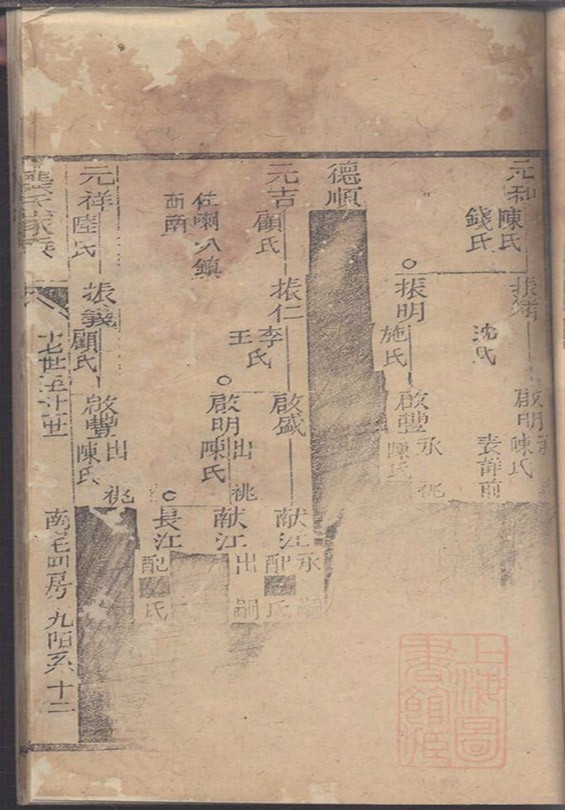 元和 陳氏
錢氏
振緒
沈氏
啟明 陳氏
表前
振明
施氏
啟豐 承祧
陳氏
德順
元吉 顧氏
住喇叭鎮
西南
振仁
李氏
王
啟盛
献江 承嗣
配 氏
啟明 出祧
陳氏
献江 出嗣
長江
配 氏
元祥 陸氏
振義
顧氏
啟豐 出祧
陳氏
氏家乘
十七世至廿一世
南宅四房九陌系 十二
上海圖書館藏